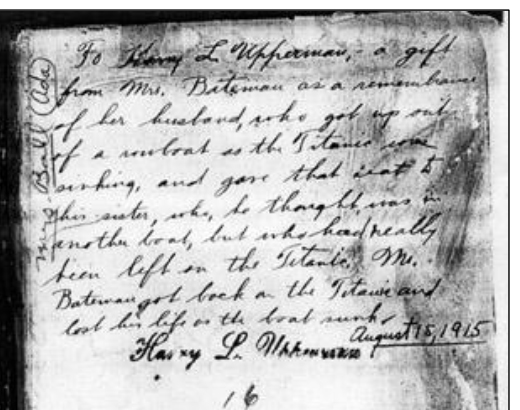 To Harry L. Upperman, - a gift
from Mrs. Bateman as a remembrance
of her husband, who got up out
of a rowboat as the Titanic was
sinking, and gave that seat to
his sister, who, he thought, was in
another boat, but who had really
been left on the Titanic. Mr.
Bateman got back on the Titanic and
lost his life as the boat sunk.
August 15, 1915
Harry L. Upperman
16
Mrs. Ball (Ada)